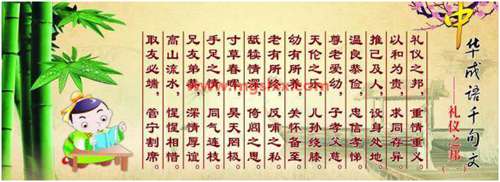 中华成语千句文
——礼仪之邦
礼仪之邦，重情重义
以和为贵，求同存异
推己及人，设身处地
温良恭俭，忠信孝悌
尊老爱幼，子孝父慈
天伦之乐，儿孙绕膝
老有所终，关怀备至
反哺之私
舐犊情深，倚闾之思
寸草春晖，昊天罔极
手足之情，同气连枝
兄友弟恭，深情厚谊
高山流水，惺惺相惜
取友必端，管宁割席